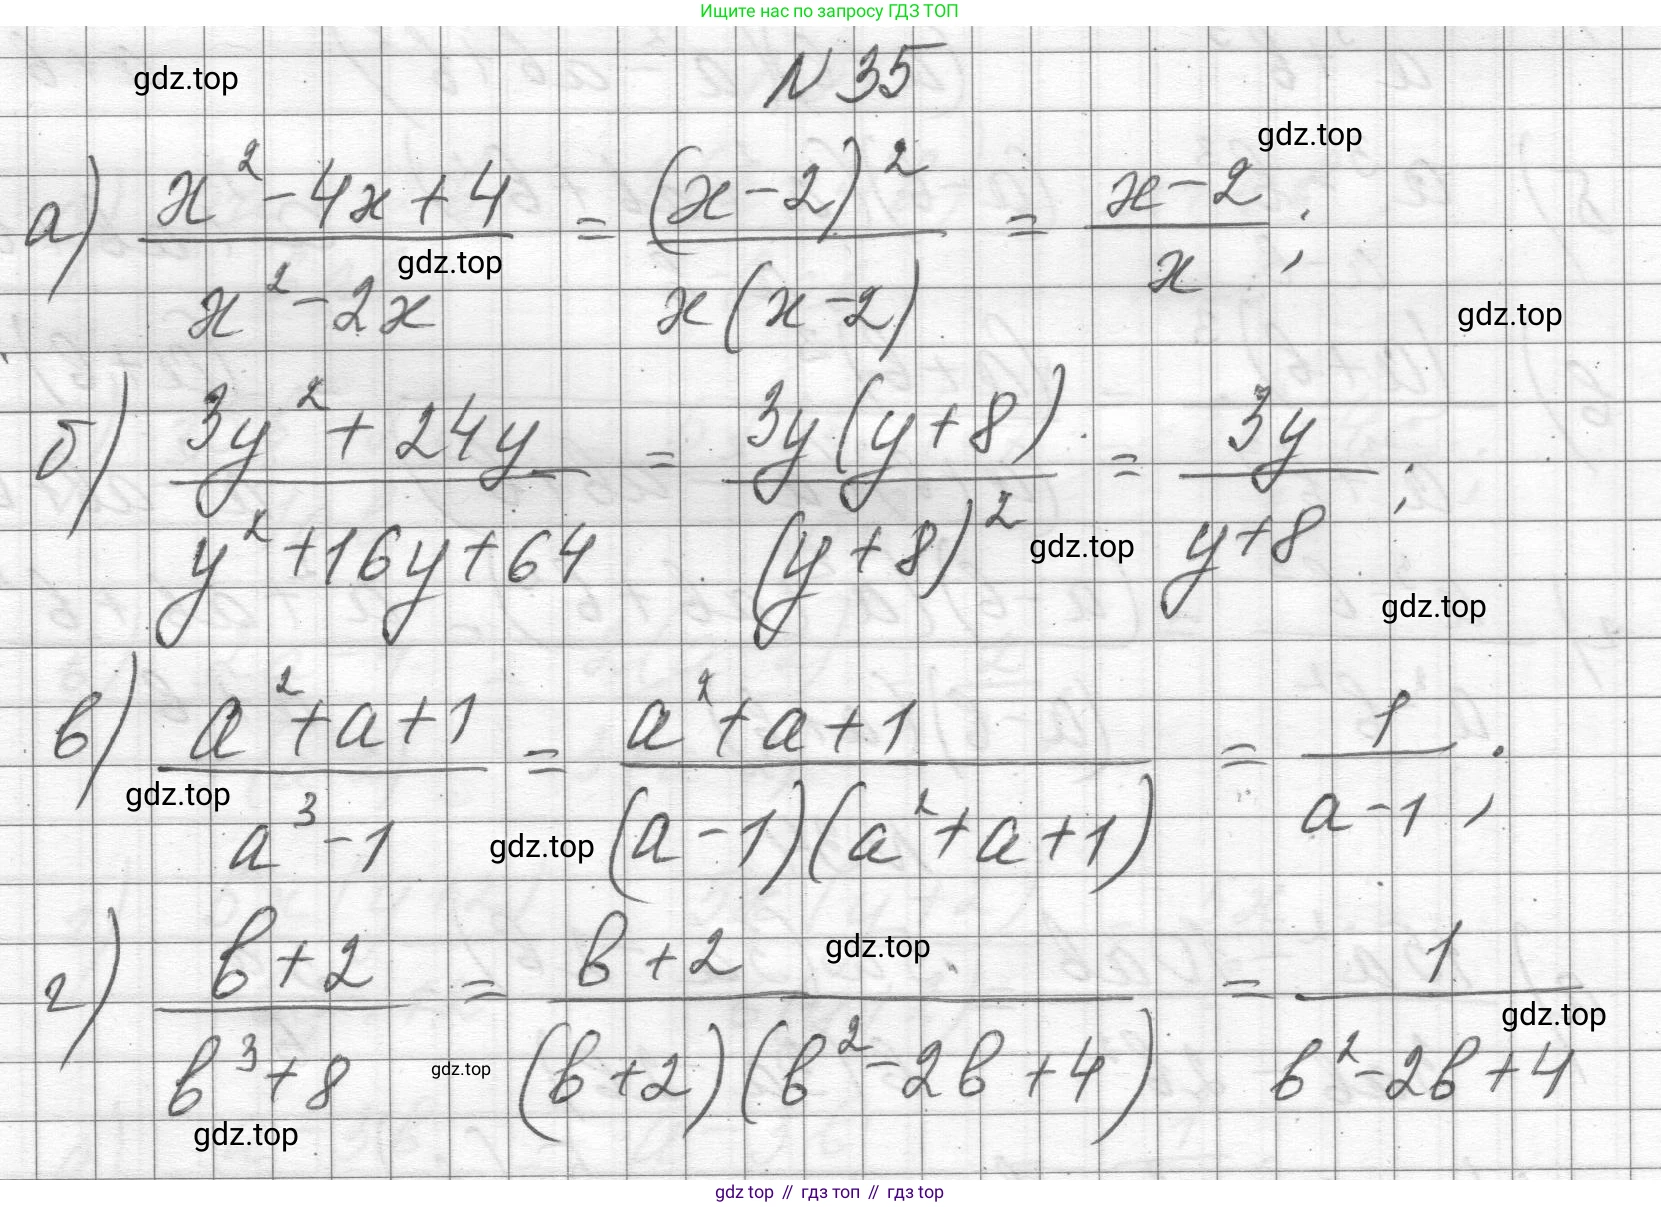 Ищите нас по запросу ГДЗ ТОП
N 35
gdz.top
gdz.top
а) (x² - 4x + 4)/(x² - 2x) = (x - 2)²/(x(x - 2)) = (x - 2)/x ;
gdz.top
gdz.top
б) (3y² + 24y)/(y² + 16y + 64) = 3y(y + 8)/(y + 8)² = 3y/(y + 8) ;
gdz.top
gdz.top
в) (a² + a + 1)/(a³ - 1) = (a² + a + 1)/((a - 1)(a² + a + 1)) = 1/(a - 1) ;
gdz.top
gdz.top
г) (b + 2)/(b³ + 8) = (b + 2)/((b + 2)(b² - 2b + 4)) = 1/(b² - 2b + 4)
gdz.top
gdz.top
gdz.top
gdz.top
gdz top // гдз топ // gdz top